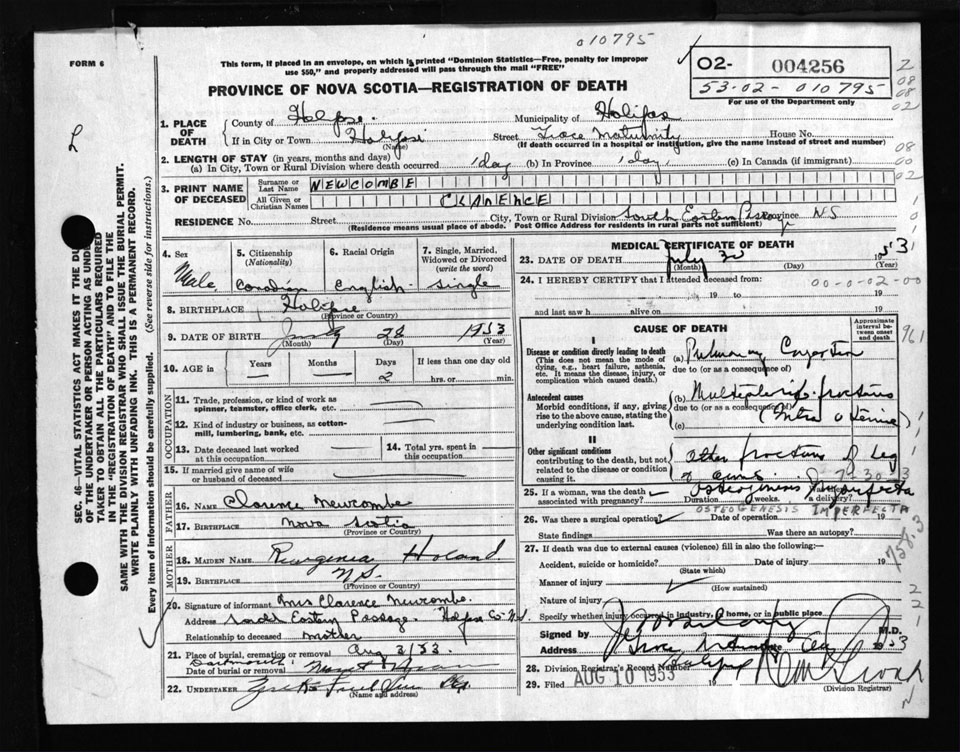 010795
FORM 6
This form, if placed in an envelope, on which is printed "Dominion Statistics—Free, penalty for improper
use $50," and properly addressed will pass through the mail "FREE"
PROVINCE OF NOVA SCOTIA—REGISTRATION OF DEATH
02- 004256
53-02-010795
For use of the Department only
1. PLACE OF DEATH
County of Halifax. Municipality of Halifax
If in City or Town Halifax Street Grace Maternity House No.
(Name) (If death occurred in a hospital or institution, give the name instead of street and number)
2. LENGTH OF STAY (in years, months and days)
(a) In City, Town or Rural Division where death occurred 1 day (b) In Province 1 day (c) In Canada (if immigrant)
3. PRINT NAME OF DECEASED
Surname or Last Name NEWCOMBE
All Given or Christian Names CLARENCE
RESIDENCE No. Street City, Town or Rural Division South Eastern Passage Province NS
(Residence means usual place of abode. Post Office Address for residents in rural parts not sufficient)
4. Sex Male
5. Citizenship (Nationality) Canadian
6. Racial Origin English
7. Single, Married, Widowed or Divorced (write the word) Single
8. BIRTHPLACE Halifax
(Province or Country)
9. DATE OF BIRTH July 28 1953
(Month) (Day) (Year)
10. AGE in Years — Months — Days 2 If less than one day old hrs. or min.
OCCUPATION
11. Trade, profession, or kind of work as spinner, teamster, office clerk, etc.
12. Kind of industry or business, as cotton-mill, lumbering, bank, etc.
13. Date deceased last worked at this occupation
14. Total yrs. spent in this occupation
15. If married give name of wife or husband of deceased
FATHER
16. NAME Clarence Newcombe
17. BIRTHPLACE Nova Scotia
(Province or Country)
MOTHER
18. MAIDEN NAME
19. BIRTHPLACE N.S.
(Province or Country)
20. Signature of informant Mrs Clarence Newcombe.
Address Eastern Passage. Halifax Co
Relationship to deceased mother
21. Place of burial, cremation or removal Aug 3/53.
Dartmouth
Date of burial or removal
22. UNDERTAKER
(Name and address)
MEDICAL CERTIFICATE OF DEATH
23. DATE OF DEATH July 30 1953
(Month) (Day) (Year)
24. I HEREBY CERTIFY that I attended deceased from:
19 to 19
and last saw h alive on 19
00-0-02-00
CAUSE OF DEATH
Approximate interval between onset and death
I
Disease or condition directly leading to death
(This does not mean the mode of dying, e.g., heart failure, asthenia, etc. It means the disease, injury, or complication which caused death.)
(a) Pulmonary
due to (or as a consequence of)
Antecedent causes
Morbid conditions, if any, giving rise to the above cause, stating the underlying condition last.
(b) Multiple rib fractures
due to (or as a consequence of)
(c) (Intra uterine)
II
Other significant conditions
contributing to the death, but not related to the disease or condition causing it.
Other fractures of leg
& arms
Osteogenesis Imperfecta
25. If a woman, was the death associated with pregnancy? Duration weeks. a delivery?
OSTEOGENESIS IMPERFECTA
26. Was there a surgical operation? Date of operation 19
State findings Was there an autopsy?
27. If death was due to external causes (violence) fill in also the following:—
Accident, suicide or homicide? Date of injury 19
(State which)
Manner of injury
(How sustained)
Nature of injury
Specify whether injury occurred in industry, home, or in public place
Signed by M.D.
Grace Maternity
Halifax
28. Division Registrar's Record Number
29. Filed AUG 10 1953 19
(Division Registrar)
758.3
961
SEC. 46—VITAL STATISTICS ACT MAKES IT THE DU
OF THE UNDERTAKER OR PERSON ACTING AS UNDE
TAKER TO OBTAIN ALL THE PARTICULARS REQUIRED
IN THE "REGISTRATION OF DEATH" AND TO FILE THE
SAME WITH THE DIVISION REGISTRAR WHO SHALL ISSUE THE BURIAL PERMIT.
WRITE PLAINLY WITH UNFADING INK. THIS IS A PERMANENT RECORD.
Every item of information should be carefully supplied. (See reverse side for instructions.)